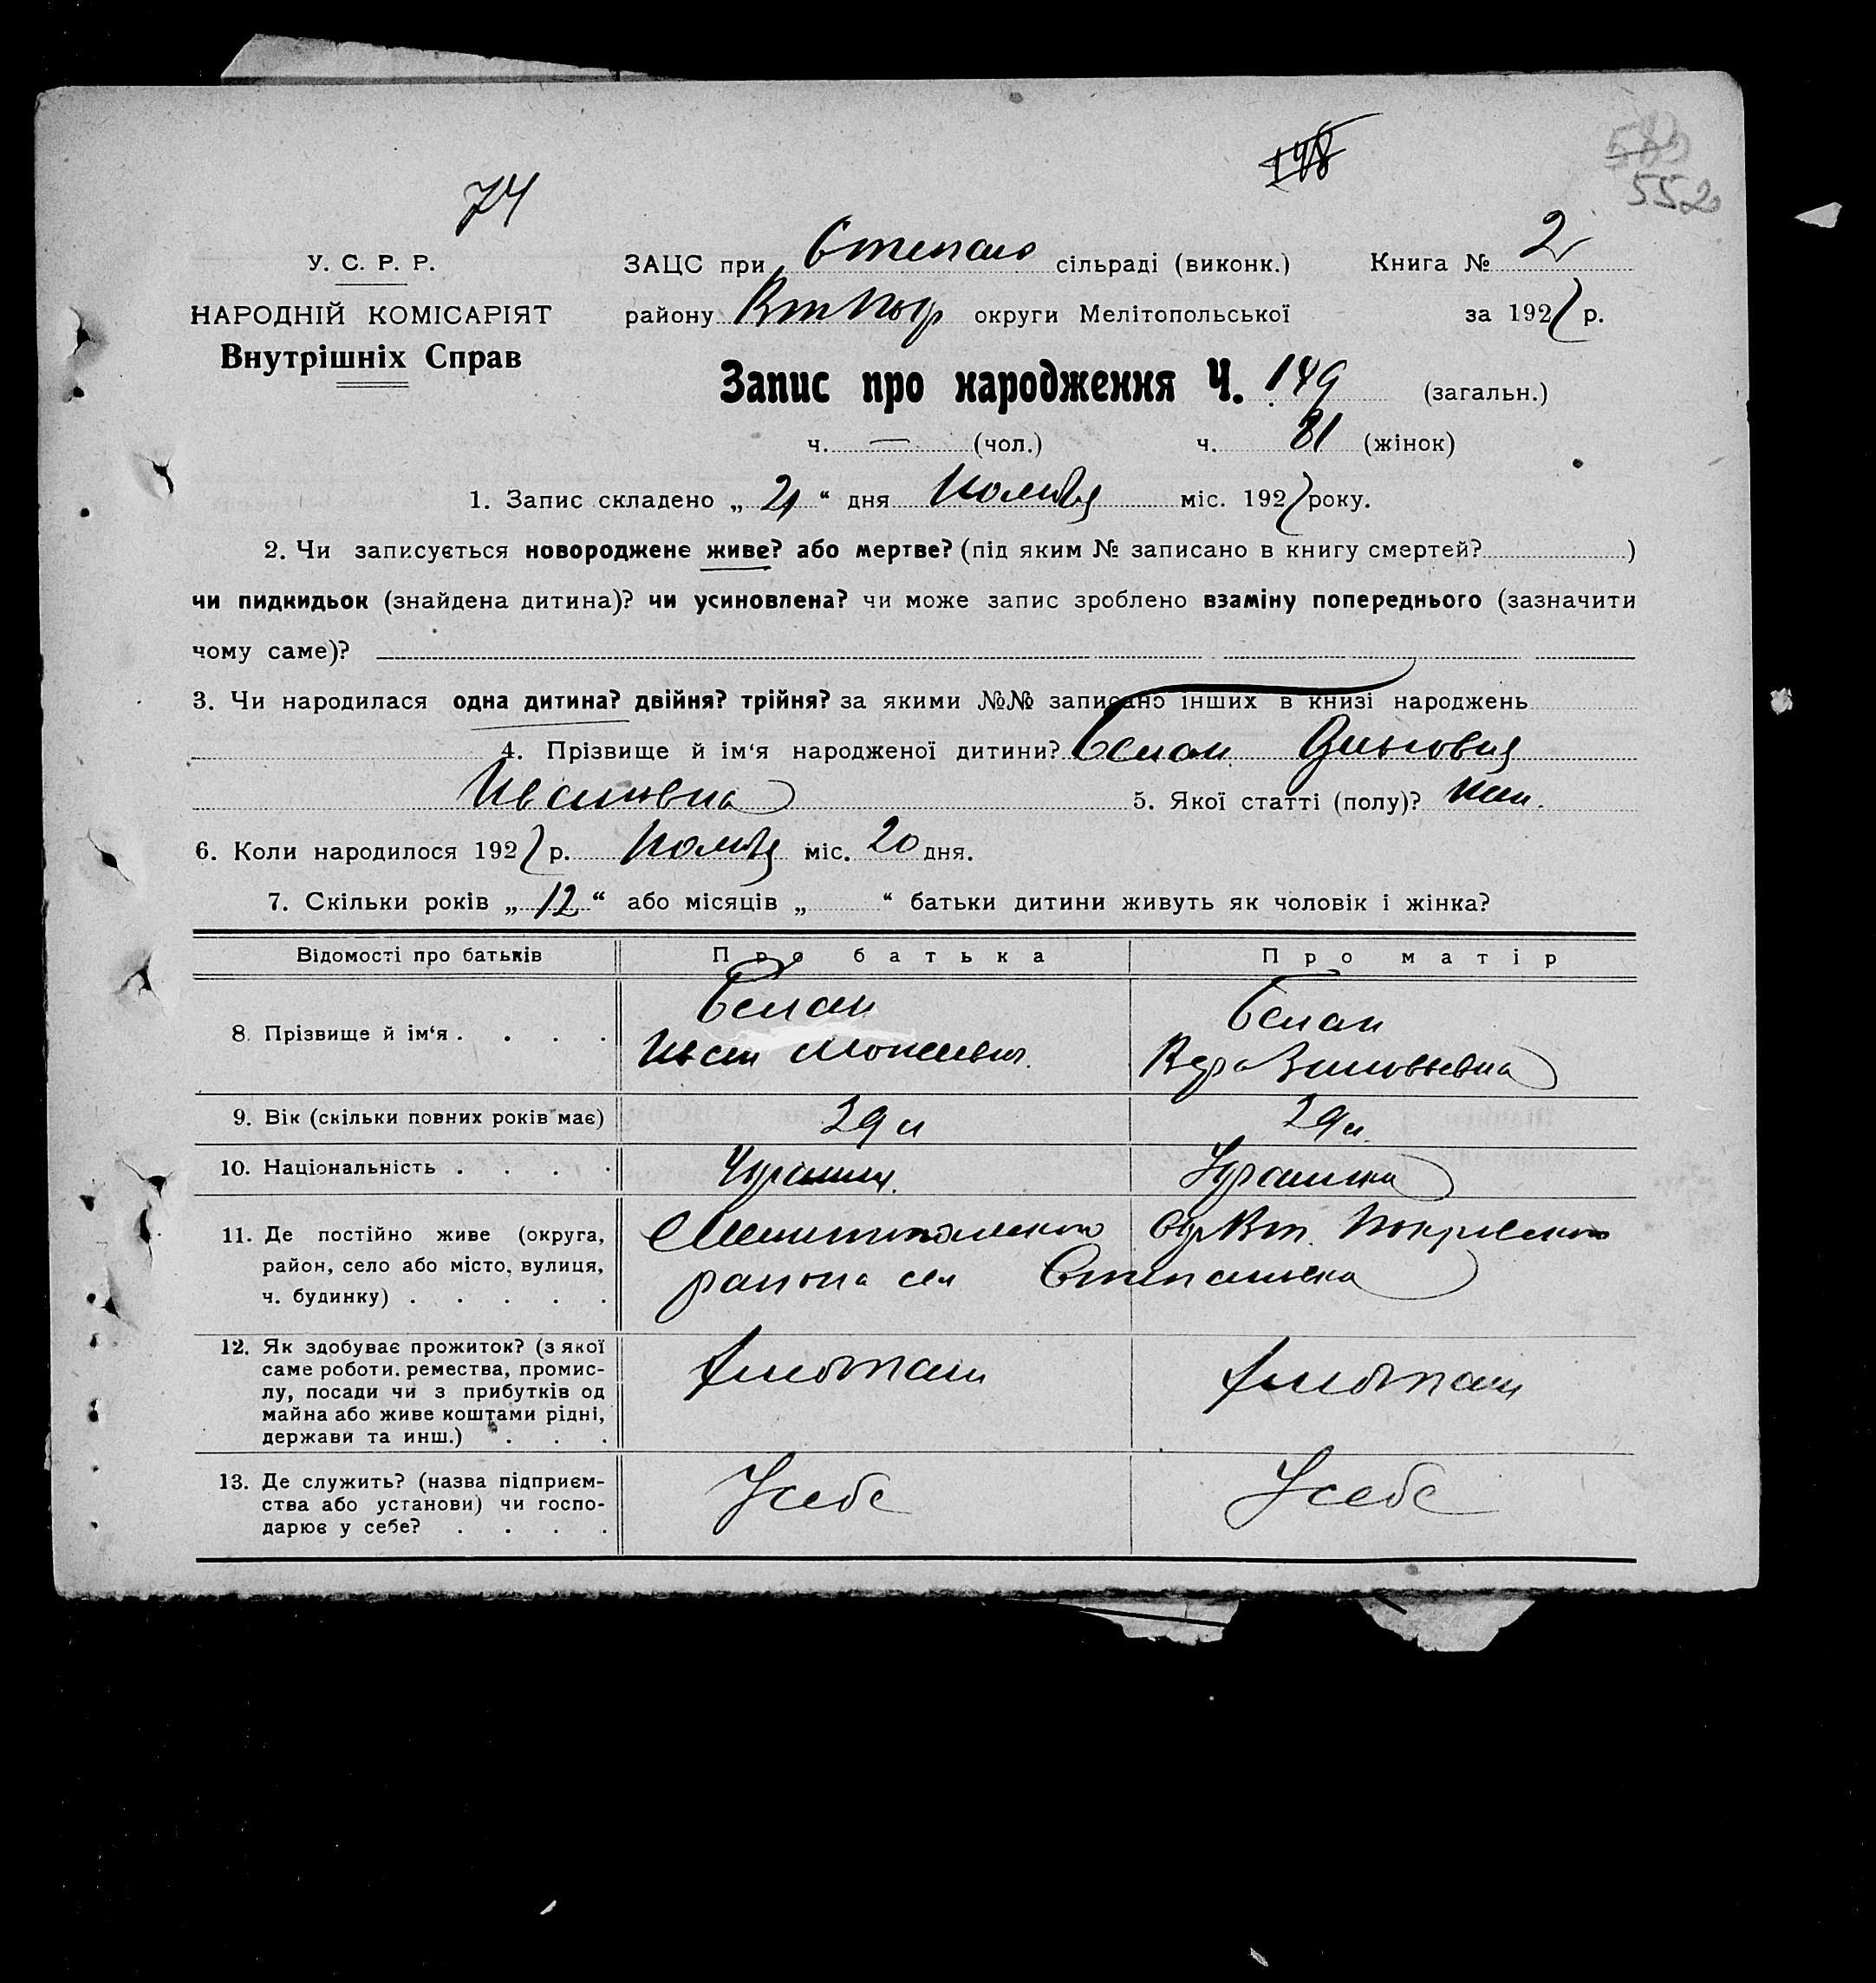 74
198
580
552
У. С. Р. Р.
НАРОДНІЙ КОМІСАРІЯТ
Внутрішніх Справ
ЗАЦС при Степано сільраді (виконк.) Книга № 2
району Вт Покр округи Мелітопольської за 1927 р.
Запис про народження Ч. 149 (загальн.)
ч. — (чол.) ч. 81 (жінок)
1. Запис складено „ 21 “ дня міс. 1927 року.
2. Чи записується новороджене живе? або мертве? (під яким № записано в книгу смертей? )
чи пидкидьок (знайдена дитина)? чи усиновлена? чи може запис зроблено взаміну попереднього (зазначити
чому саме)?
3. Чи народилася одна дитина? двійня? трійня? за якими №№ записано інших в книзі народжень
4. Прізвище й ім‘я народженої дитини? Белан
Ивановна 5. Якої статті (полу)? жен.
6. Коли народилося 1927 р. міс. 20 дня.
7. Скільки років „ 12 “ або місяців „ “ батьки дитини живуть як чоловік і жінка?
Відомості про батьків Про батька Про матір
8. Прізвище й ім‘я . . . . Белан Белан
Иван Моисеевич. Вера Зиновьевна
9. Вік (скільки повних років має) 29 л 29 л.
10. Національність . . . . Украинец. Украинка
11. Де постійно живе (округа, Мелитопольского окр Вт. Покровского
район, село або місто, вулиця, района сел Степановка
ч. будинку) . . . . .
12. Як здобуває прожиток? (з якої
саме роботи, ремества, промис- хлебопаш хлебопаш
лу, посади чи з прибутків од
майна або живе коштами рідні,
держави та инш.) . . .
13. Де служить? (назва підприєм- У себе У себе
ства або установи) чи госпо-
дарює у себе? . . . .